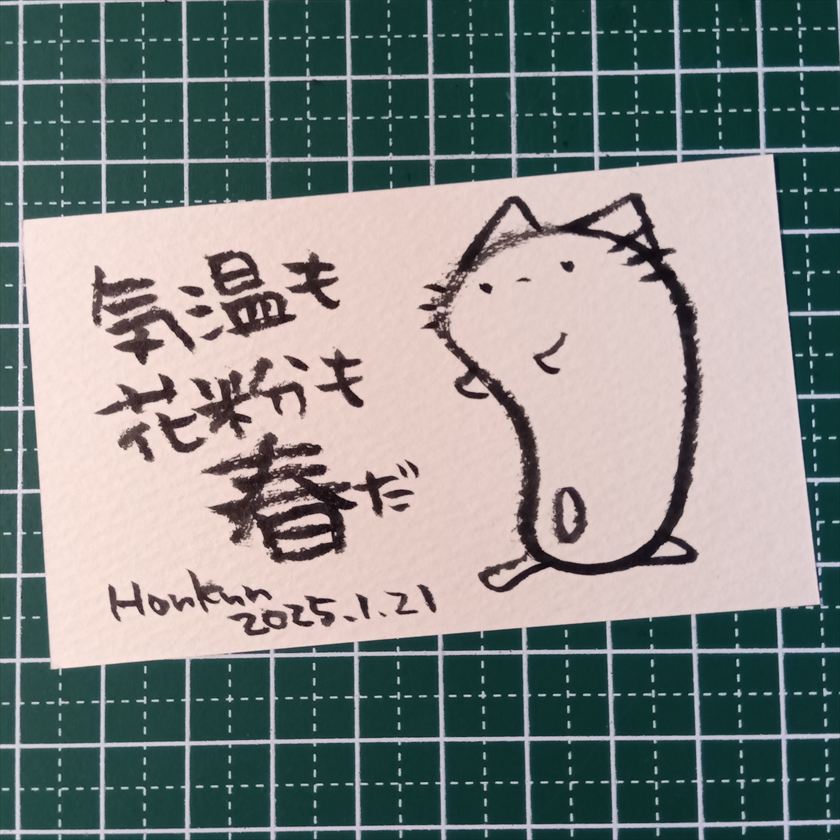 気温も
花粉も
春だ
Honkun
2025.1.21